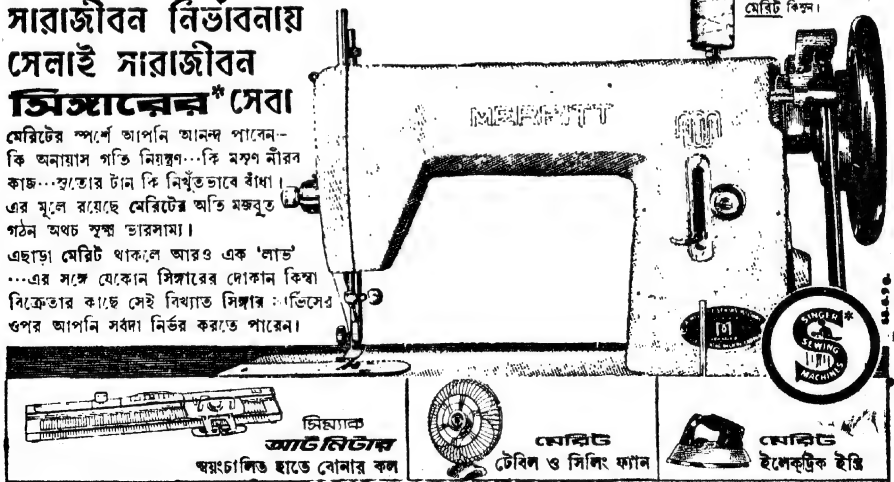 মেরিট কিনুন।
সারাজীবন নির্ভাবনায়
সেলাই সারাজীবন
সিঙ্গারের* সেবা
মেরিটের স্পর্শে আপনি আনন্দ পাবেন—
কি অনায়াস গতি নিয়ন্ত্রণ···কি মসৃণ নীরব
কাজ···সুতোর টান কি নিখুঁতভাবে বাঁধা।
এর মূলে রয়েছে মেরিটের অতি মজবুত
গঠন অথচ সূক্ষ্ম ভারসাম্য।
এছাড়া মেরিট থাকলে আরও এক 'লাভ'
···এর সঙ্গে যেকোন সিঙ্গারের দোকান কিম্বা
বিক্রেতার কাছে সেই বিখ্যাত সিঙ্গার সার্ভিসের
ওপর আপনি সর্বদা নির্ভর করতে পারেন।
MERRITT
SINGER
SEWING
MACHINES
*
সিম্যাক
অটিমিটার
স্বয়ংচালিত হাতে বোনার কল
মেরিট
টেবিল ও সিলিং ফ্যান
মেরিট
ইলেকট্রিক ইস্ত্রি